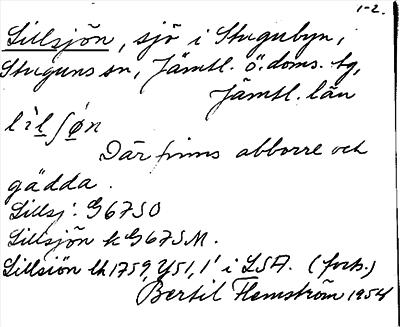 1-2.
Lillsjön, sjö i Stugubyn,
Stuguns sn, Jämtl. ö. doms. tg,
Jämtl. län
lìlʃǿn
Där finns abborre och
gädda.
Lillsj: G67SO
Lillsjön k G67SM.
Lillsiön lk 1759, Y51, 1' i LSA. (forts.)
Bertil Flemström 1954